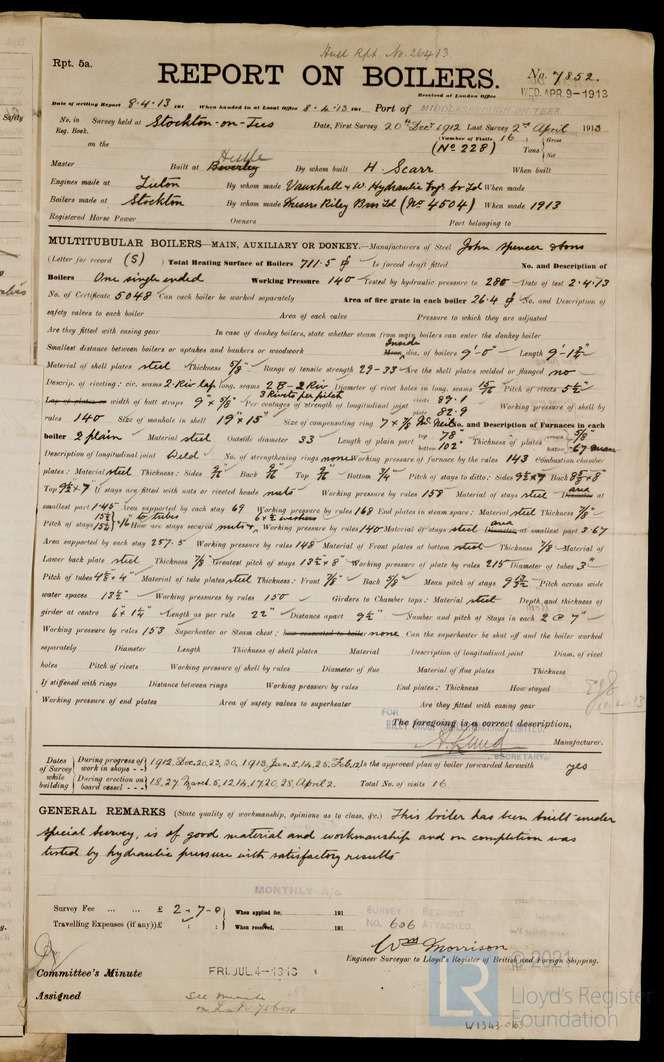 Hull Rpt. No. 26413
Rpt. 5a.
REPORT ON BOILERS.
No. 7852.
Received at London Office WED. APR 9-1913
Date of writing Report 8.4.13 191 When handed in at Local Office 8.4.13 191 Port of MIDDLESBROUGH-ON-TEES
No. in Reg. Book. Survey held at Stockton-on-Tees Date, First Survey 20th Decr 1912 Last Survey 2nd April 1913
(Number of Visits 16)
on the (No 228) Tons { Gross Net
Master Built at Beverley Hessle By whom built H. Scarr When built
Engines made at Luton By whom made Vauxhall & W. Hydraulic Engrs Co Ltd When made
Boilers made at Stockton By whom made Messrs Riley Bros Ltd (No 4504) When made 1913
Registered Horse Power Owners Port belonging to
MULTITUBULAR BOILERS—MAIN, AUXILIARY OR DONKEY.—Manufacturers of Steel John Spencer & Sons
(Letter for record (S) ) Total Heating Surface of Boilers 711.5 Is forced draft fitted No. and Description of
Boilers One single ended Working Pressure 140 Tested by hydraulic pressure to 280 Date of test 2.4.13
No. of Certificate 5048 Can each boiler be worked separately Area of fire grate in each boiler 26.4 No. and Description of
safety valves to each boiler Area of each valve Pressure to which they are adjusted
Are they fitted with easing gear In case of donkey boilers, state whether steam from main boilers can enter the donkey boiler
Smallest distance between boilers or uptakes and bunkers or woodwork Mean Inside dia. of boilers 9'-0" Length 9'-1½"
Material of shell plates steel Thickness 5/8" Range of tensile strength 29-33 Are the shell plates welded or flanged no
Descrip. of riveting: cir. seams 2 Riv lap long. seams 2 B-2 Riv Diameter of rivet holes in long. seams 15/16 Pitch of rivets 5½"
3 Rivets per pitch
Lap of plates or width of butt straps 9" x 5/8" Per centages of strength of longitudinal joint rivets 89.1 plate 82.9 Working pressure of shell by
rules 140 Size of manhole in shell 19" x 15" Size of compensating ring 7" x 7/8" McNeil No. and Description of Furnaces in each
boiler 2 plain Material steel Outside diameter 33 Length of plain part top 78" bottom 102" Thickness of plates crown 5/8" bottom .67 mean
Description of longitudinal joint Weld No. of strengthening rings none Working pressure of furnace by the rules 143 Combustion chamber
plates: Material steel Thickness: Sides 9/16" Back 9/16" Top 9/16" Bottom 3/4" Pitch of stays to ditto: Sides 9½ x 7 Back 8½ x 8"
Top 9½ x 7" If stays are fitted with nuts or riveted heads nuts Working pressure by rules 158 Material of stays steel Diameter area at
smallest part 1.45 Area supported by each stay 69 Working pressure by rules 168 End plates in steam space: Material steel Thickness 7/8"
Pitch of stays 15½ to tubes x 16 How are stays secured nuts & washers Working pressure by rules 140 Material of stays steel Diameter area at smallest part 3.67
Area supported by each stay 257.5 Working pressure by rules 148 Material of Front plates at bottom steel Thickness 7/8 Material of
Lower back plate steel Thickness 7/8" Greatest pitch of stays 13½ x 8" Working pressure of plate by rules 215 Diameter of tubes 3"
Pitch of tubes 4½ x 4" Material of tube plates steel Thickness: Front 7/8" Back 5/8" Mean pitch of stays Pitch across wide
water spaces 13½" Working pressures by rules 150 Girders to Chamber tops: Material steel Depth and thickness of
girder at centre 6" x 1¼" Length as per rule 22" Distance apart 9½" Number and pitch of Stays in each 2 @ 7"
Working pressure by rules 153 Superheater or Steam chest; how connected to boiler none Can the superheater be shut off and the boiler worked
separately Diameter Length Thickness of shell plates Material Description of longitudinal joint Diam. of rivet
holes Pitch of rivets Working pressure of shell by rules Diameter of flue Material of flue plates Thickness
If stiffened with rings Distance between rings Working pressure by rules End plates: Thickness How stayed
Working pressure of end plates Area of safety valves to superheater Are they fitted with easing gear
11.4.13
The foregoing is a correct description,
FOR RILEY BROS (BOILERMAKERS) LIMITED.
Manufacturer.
SECRETARY
Dates of Survey while building
During progress of work in shops - - 1912. Dec. 20, 23, 30. 1913. Jan. 8, 14, 25. Feb. 12 Is the approved plan of boiler forwarded herewith yes
During erection on board vessel - - - 18, 27. March. 5, 12, 14, 17, 20, 28. April 2. Total No. of visits 16
GENERAL REMARKS (State quality of workmanship, opinions as to class, &c.) This boiler has been built under
special survey, is of good material and workmanship and on completion was
tested by hydraulic pressure with satisfactory results
MONTHLY A/c
Survey Fee ... ... £ 2-7-0 When applied for, 191
Travelling Expenses (if any) £ : : When received, 191
SURVEY REQUEST
No. 636 ATTACHED
Wm Morrison
Engineer Surveyor to Lloyd's Register of British and Foreign Shipping.
Committee's Minute FRI. JUL. 4-1913
Assigned See minute
© 2021
LR
Lloyd's Register
Foundation
W1343-0163
Safety